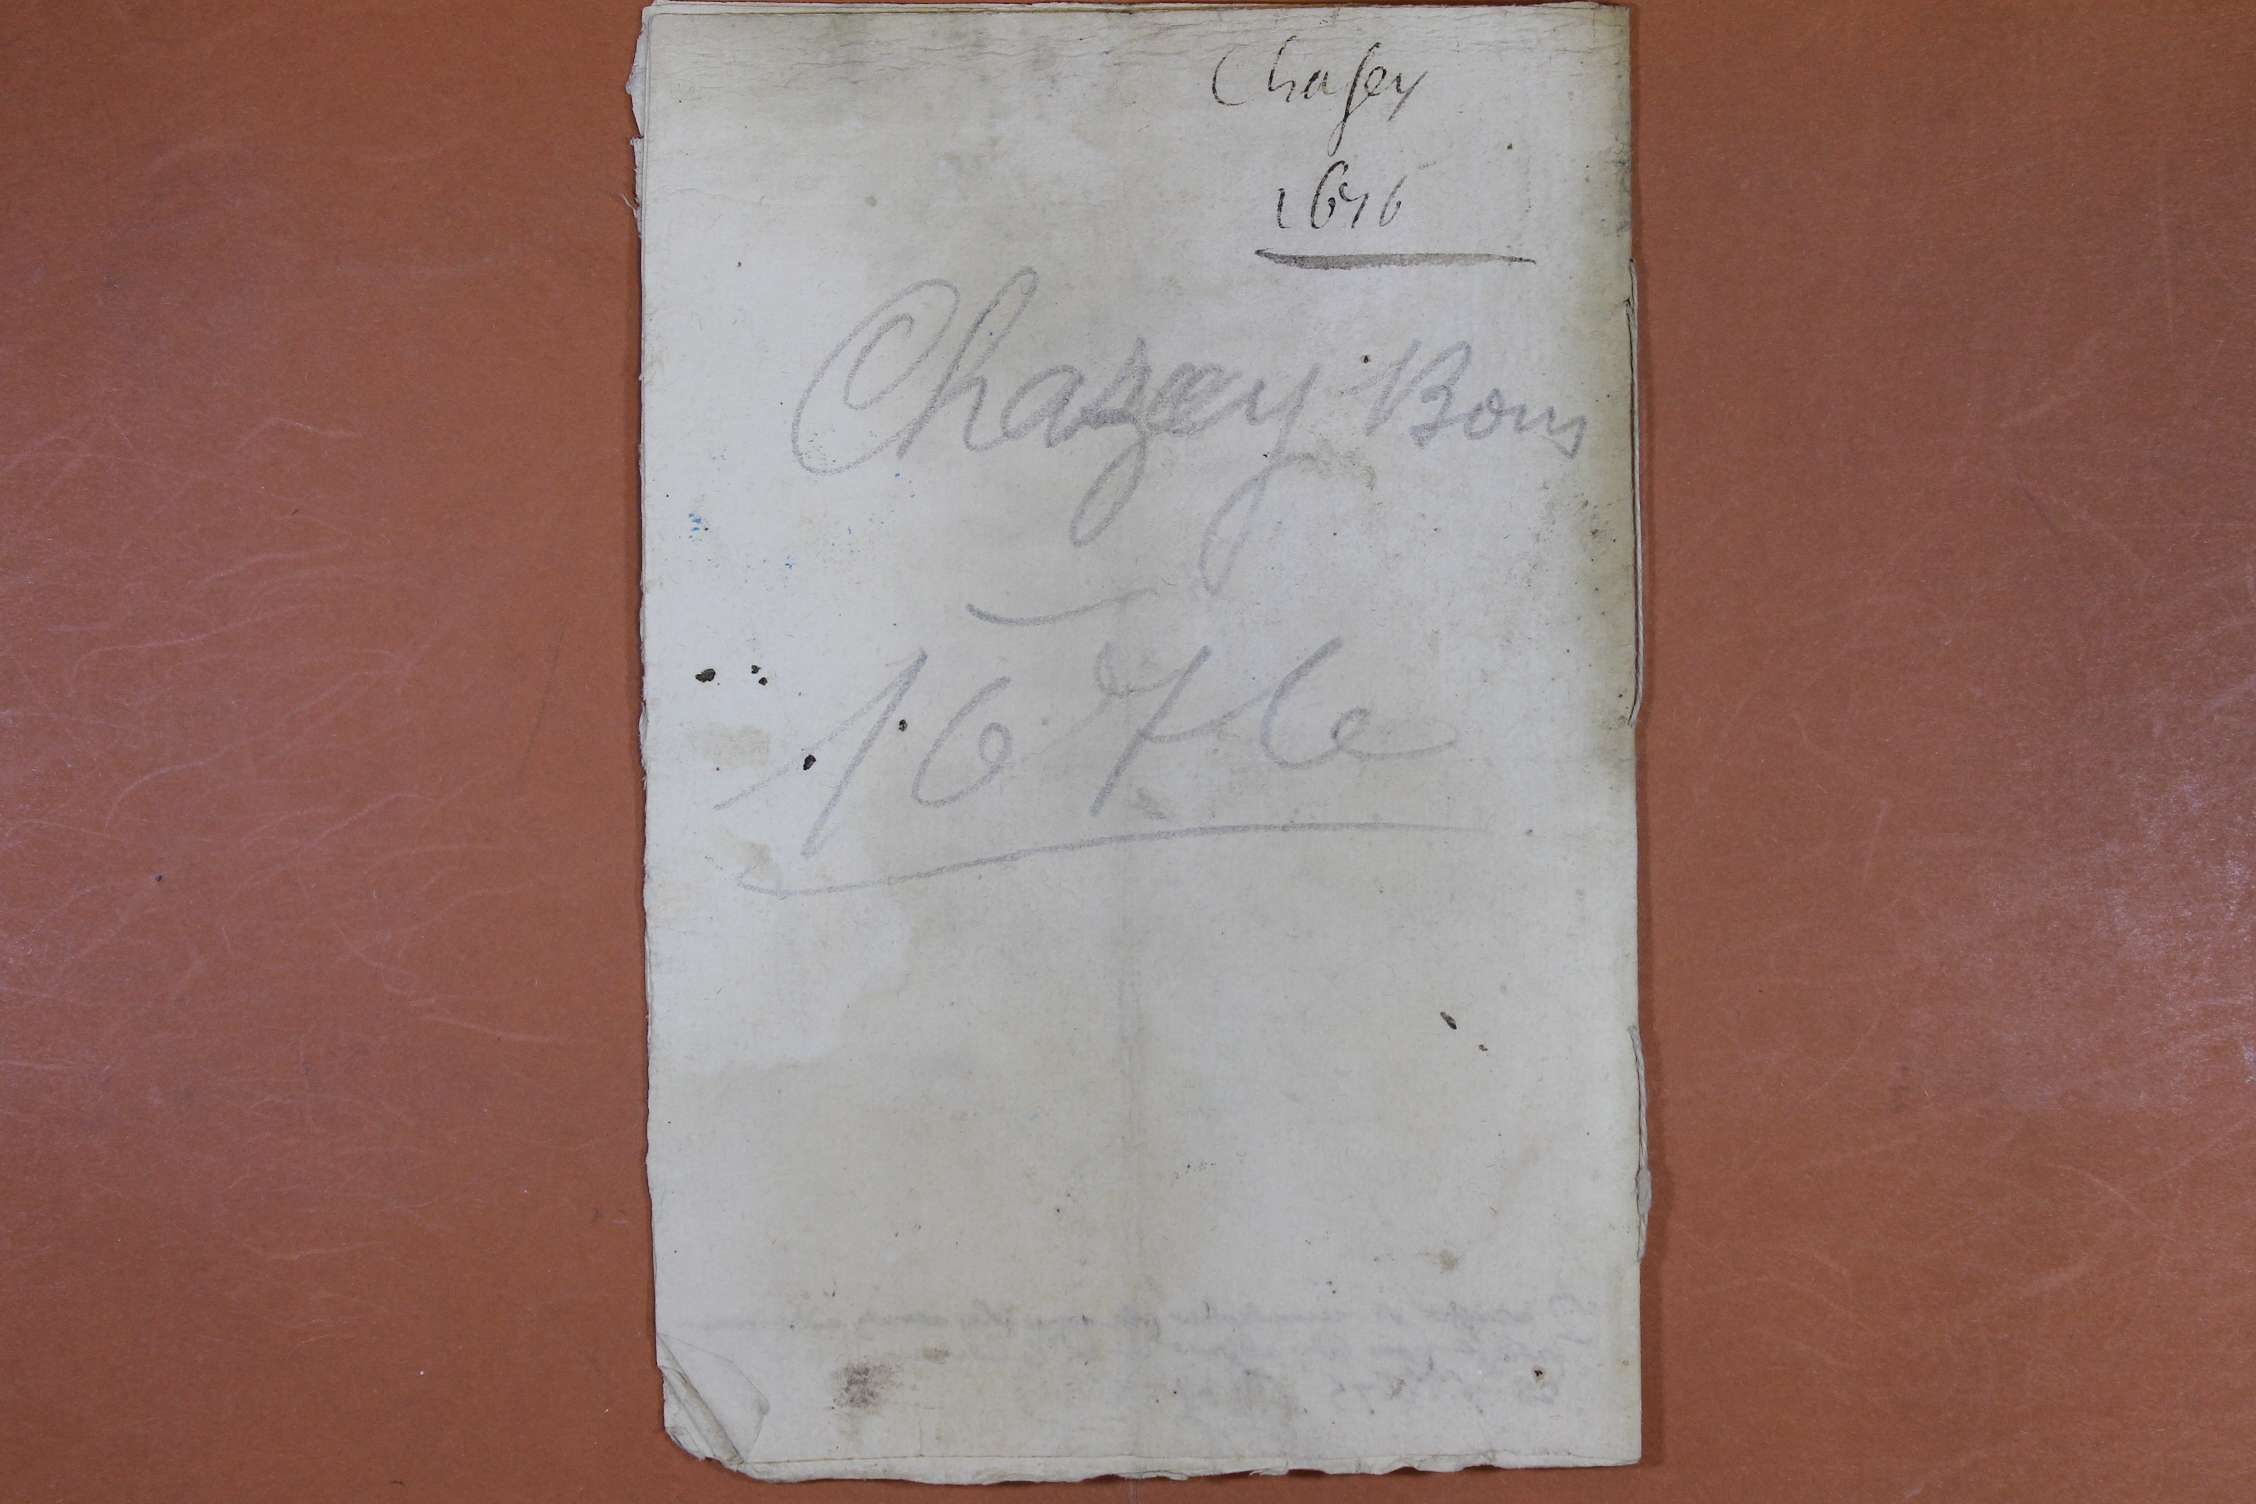 Chasey
1676
Chazey Bons
1676